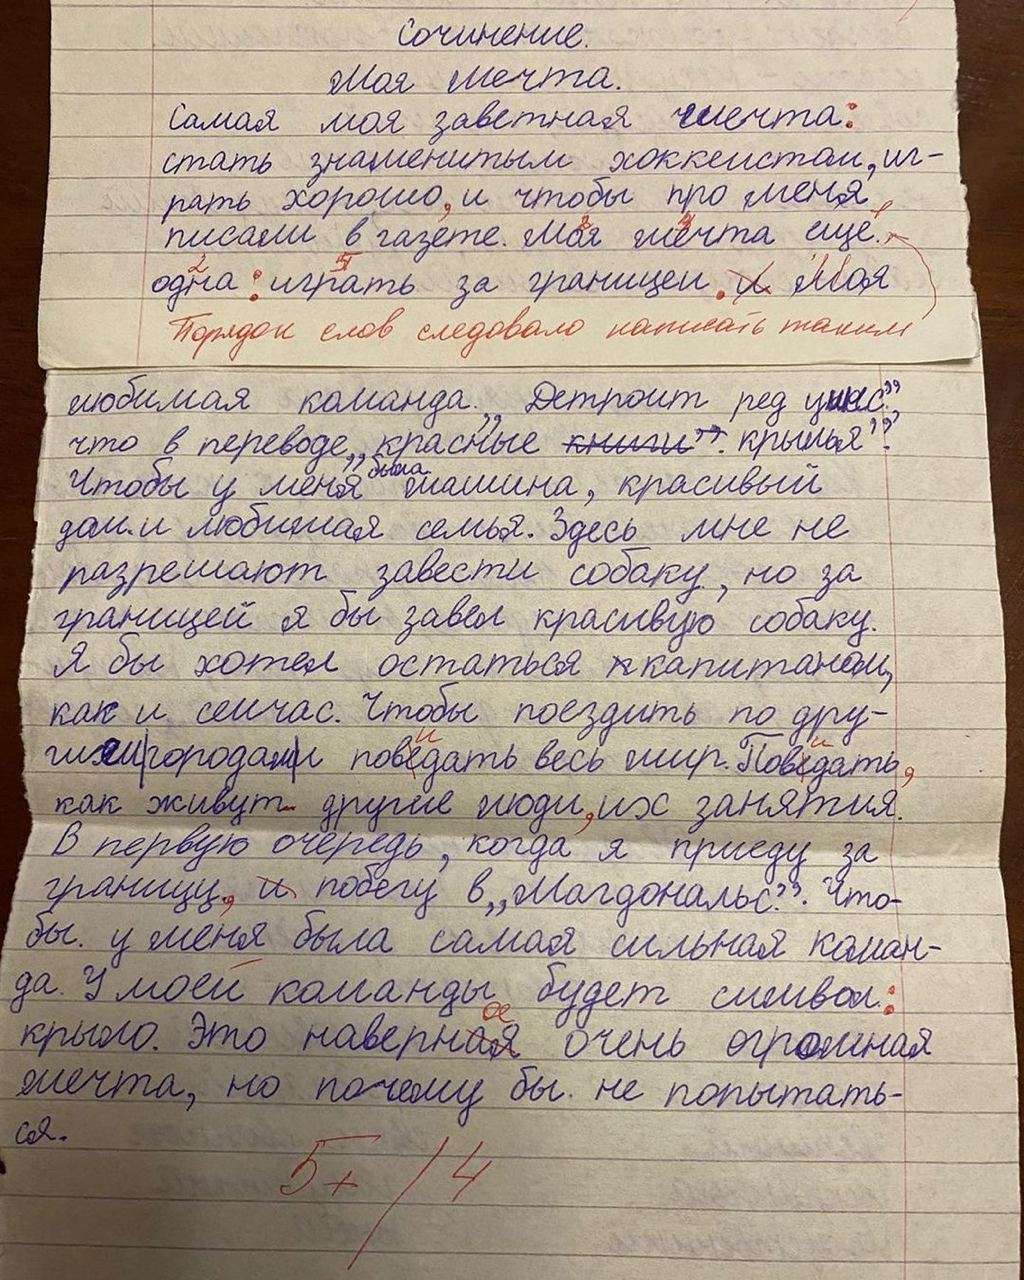 Сочинение.
Моя мечта.
Самая моя заветная мечта:
стать знаменитым хоккеистом, иг-
рать хорошо, и чтобы про меня
писали в газете. Моя мечта ещё
одна: играть за границей. и Моя
Порядок слов следовало написать таким
любимая команда „Детроит ред уинкс"
что в переводе „красные книги". крылья".
Чтобы у меня была машина, красивый
дом и любимая семья. Здесь мне не
разрешают завести собаку, но за
границей я бы завел красивую собаку.
Я бы хотел остаться капитаном,
как и сейчас. Чтобы поездить по дру-
гим городам и поведать весь мир. Поведать,
как живут другие люди, их занятия.
В первую очередь, когда я приеду за
границу, и побегу в „Магдональс". Что-
бы у меня была самая сильная коман-
да. У моей команды будет символ:
крыло. Это наверная ое очень огромная
мечта, но почему бы не попытать-
ся.
5+ / 4